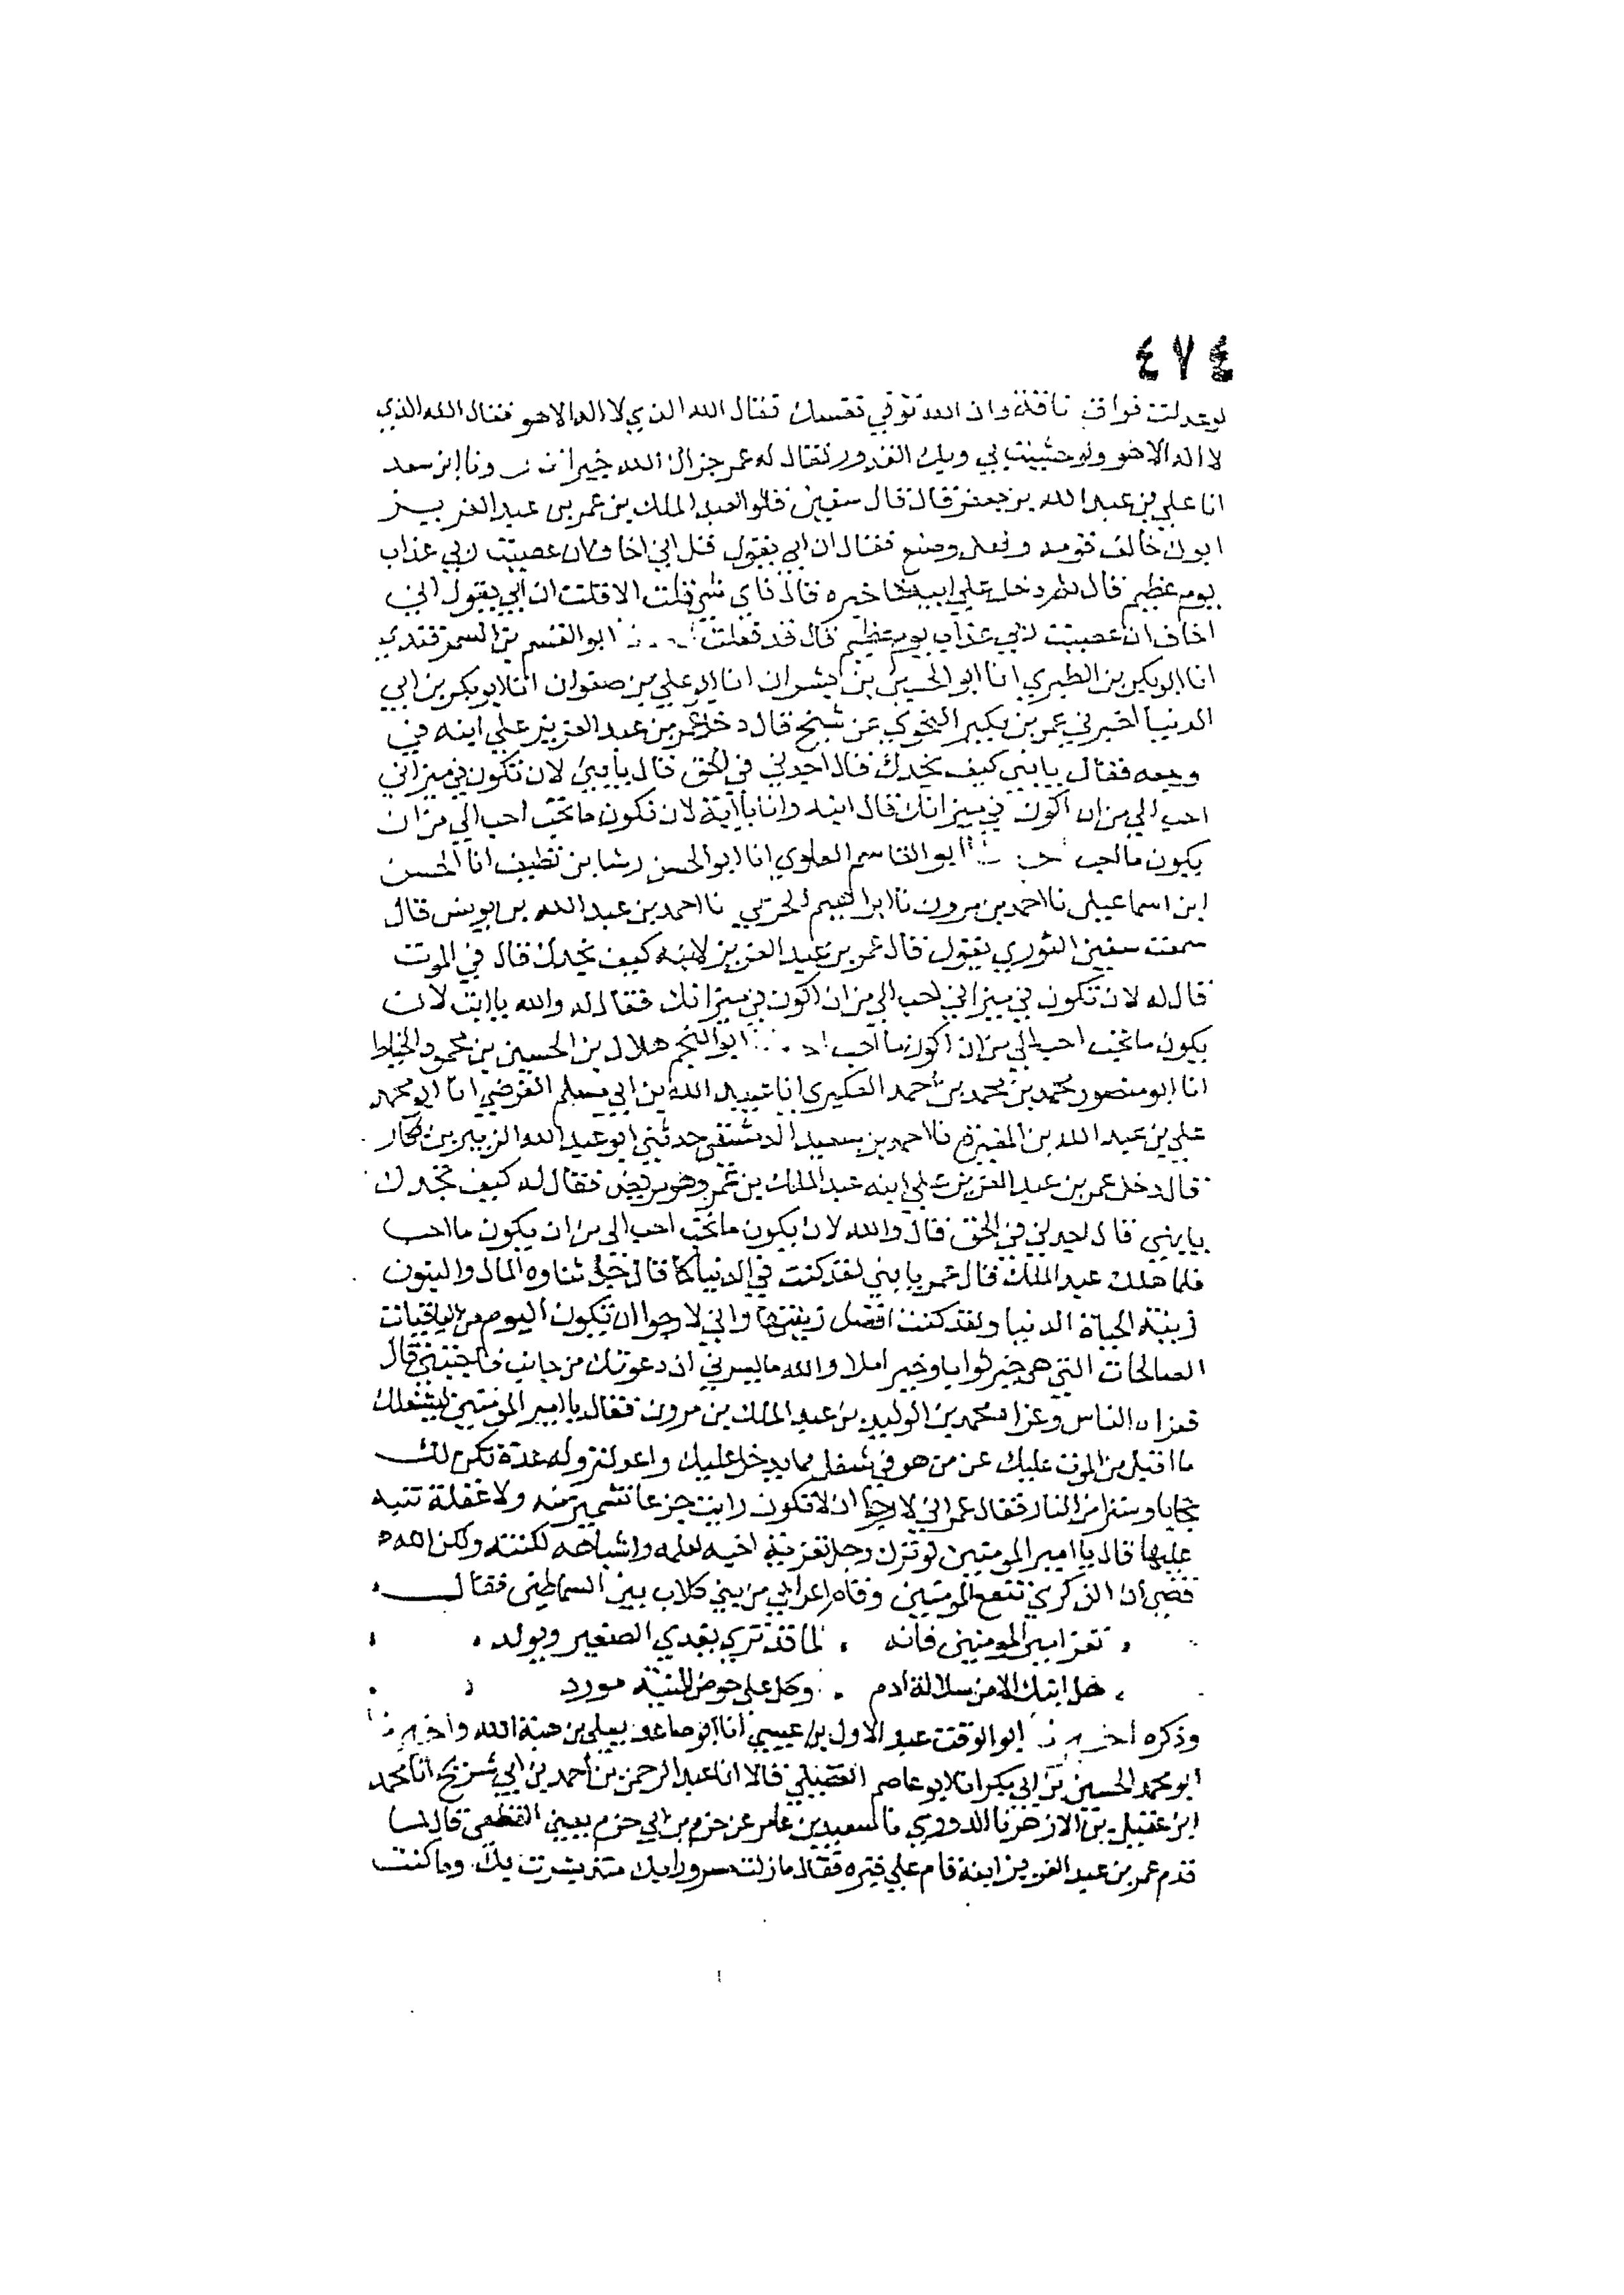 ٤٧٤
لو عدلت فواق ناقة وان الله توفي نفسك فقال الله الذي لا اله الا هو فقال الله الذي
لا اله الا هو ولو جثيت بي وبك القدور فقال له عمر جزاك الله خيرا ونا ابن سعد
انا علي بن عبد الله بن جعفر قال قال سفين قالوا لعبد الملك بن عمر بن عبد العزيز
ابوك خالف قومه وفعل وصنع فقال ان ابي يقول قل اني اخاف ان عصيت ربي عذاب
يوم عظيم قال ثم دخل علي ابيه فاخبره قال فاي شي قلت الا قلت ان ابي يقول اني
اخاف ان عصيت ربي عذاب يوم عظيم قال قد فعلت ابو القسم بن السمرقندي
انا ابو بكر بن الطبري انا ابو الحسين بن بشران انا ابو علي بن صفوان انا ابو بكر بن ابي
الدنيا اخبرني عمر بن بكير النحوي عن شيخ قال دخل عمر بن عبد العزيز علي ابنه في
وجعه فقال يا بني كيف تجدك قال اجدني في الحق قال يا بني لان تكون في ميزاني
احب الي من ان اكون في ميزانك قال ابنه وانا يا ابة لان تكون ما تحب احب الي من ان
يكون ما احب ابو القاسم العلوي انا ابو الحسن رشا بن نظيف انا الحسن
ابن اسماعيل نا احمد بن مرون نا ابراهيم الحربي نا احمد بن عبد الله بن يونس قال
سمعت سفين الثوري يقول قال عمر بن عبد العزيز لابنه كيف تجدك قال في الموت
قال له لان تكون في ميزاني احب الي من ان اكون في ميزانك فقال له والله يا ابت لان
يكون ما تحب احب الي من ان اكون ما احب ابو النجم هلال بن الحسين بن محمود الخياط
انا ابو منصور محمد بن محمد بن احمد العكبري انا عبيد الله بن ابي مسلم الفرضي انا ابو محمد
علي بن عبد الله بن المغيرة نا احمد بن سعيد الدمشقي حدثني ابو عبد الله الزبير بن بكار
قال دخل عمر بن عبد العزيز علي ابنه عبد الملك بن عمر وهو مريض فقال له كيف تجدك
يا بني قال اجدني في الحق قال والله لان يكون ما تحب احب الي من ان يكون ما احب
فلما هلك عبد الملك قال عمر يا بني لقد كنت في الدنيا كما قال جل ثناوه المال والبنون
زينة الحياة الدنيا ولقد كنت افضل زينتها واني لارجوا ان تكون اليوم من الباقيات
الصالحات التي هي خير ثوابا وخير املا والله ما يسرني ان دعوتك من جانب فاجبتني قال
فعزاه الناس وعزاه محمد بن الوليد بن عبد الملك بن مرون فقال يا امير المومنين ليشغلك
ما اقبل من الموت عليك عن من هو في شغل مما يدخل عليك واعد لنزوله عدة تكن لك
حجابا وسترا من النار فقال عمر اني لارجوا ان لا تكون رايت جزعا تشمئز منه ولا غفلة تنبه
عليها قال يا امير المومنين لو ترك رجل تعزية اخيه لعلمه وانتباهه لكنته ولكن الله
قضى ان الذكري تنفع المومنين وقام اعرابي من بني كلاب بين السماطين فقال
تعز امير المومنين فانه لما قد تري يغدي الصغير ويولد
هل ابنك الا من سلالة ادم وكل علي حوض المنية مورد
وذكره ابو الوقت عبد الاول بن عيسي انا ابو صاعد يعلي بن هبة الله
ابو محمد الحسين بن ابي بكر انا ابو عاصم الفضيلي قالا انا عبد الرحمن بن احمد بن ابي شريح انا محمد
ابن عقيل بن الازهر نا الدوري نا سعيد بن عامر عن حزم بن ابي حزم يعني القطعي قال لما
قدم عمر بن عبد العزيز ابنه قام علي قبره فقال ما زلت مسرورا بك منذ بشرت بك وما كنت